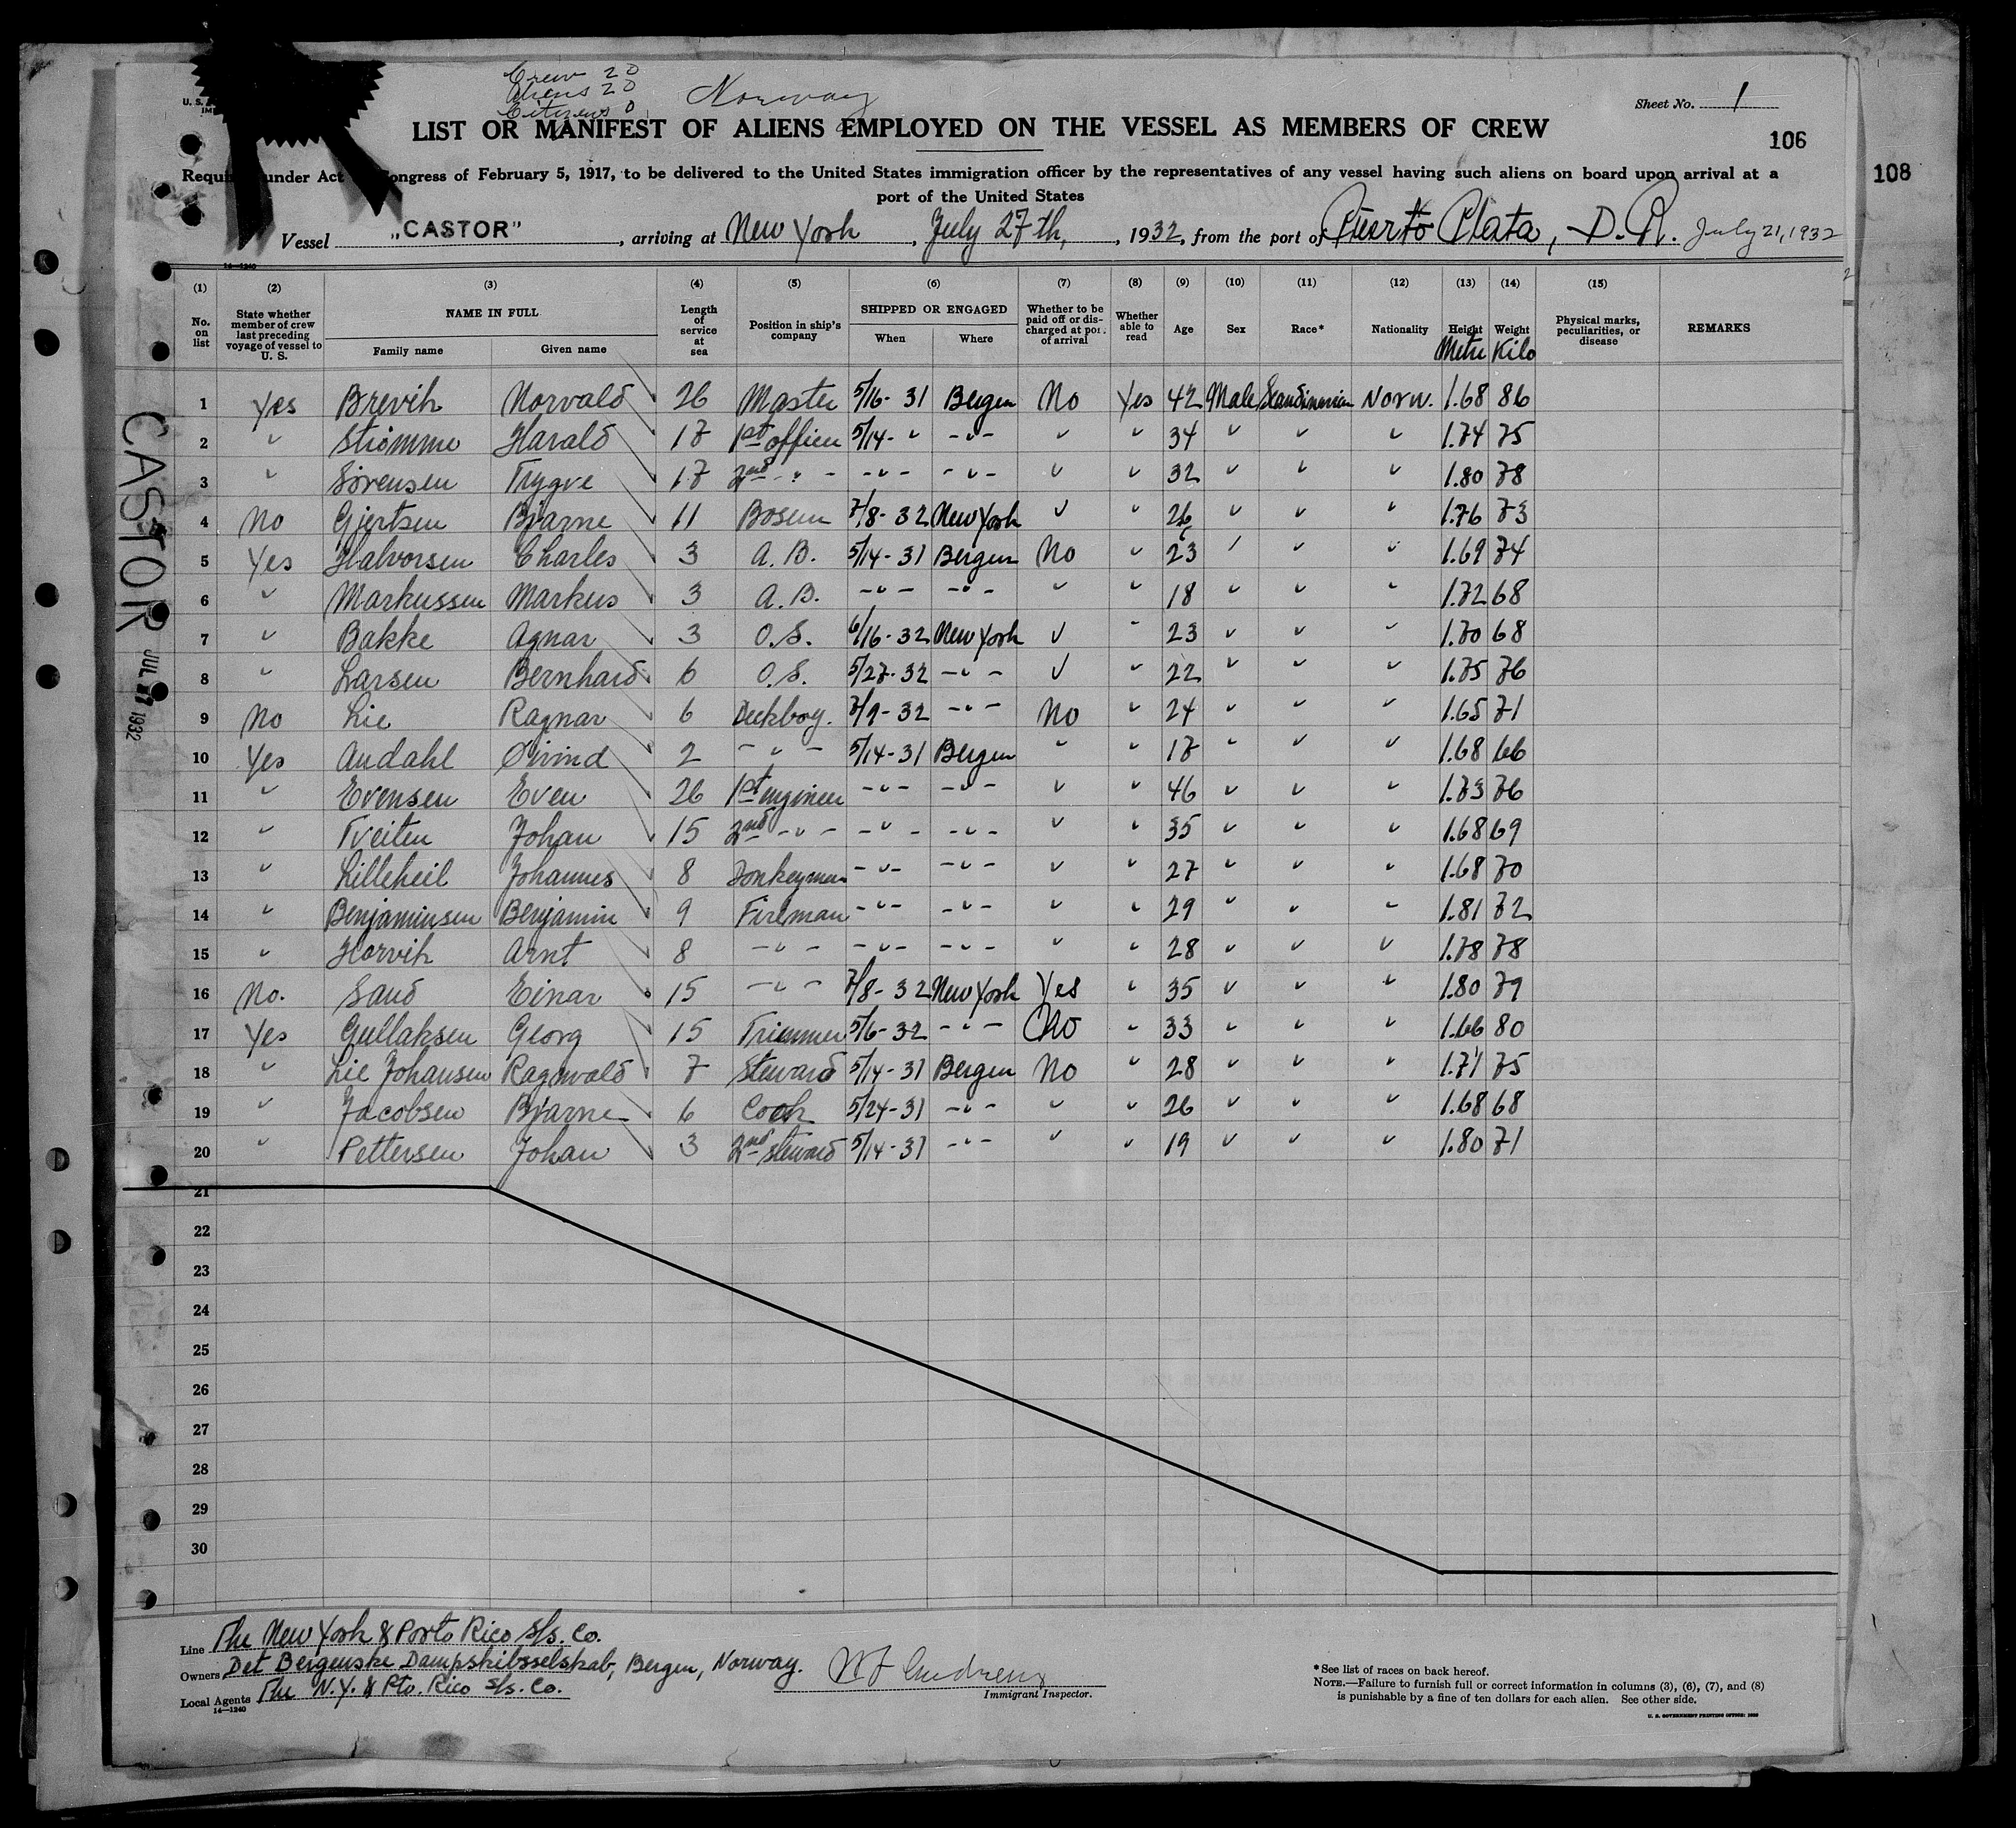 Crew 20
Aliens 20
Citizens 0
Norway
U. S.
Sheet No. 1
LIST OR MANIFEST OF ALIENS EMPLOYED ON THE VESSEL AS MEMBERS OF CREW
106
108
under Act Congress of February 5, 1917, to be delivered to the United States immigration officer by the representatives of any vessel having such aliens on board upon arrival at a
port of the United States
Vessel „CASTOR", arriving at New York, July 27th, 1932, from the port of Puerto Plata, D.R. July 21, 1932
14—1240
(1) (2) (3) (4) (5) (6) (7) (8) (9) (10) (11) (12) (13) (14) (15)
No. on list | State whether member of crew last preceding voyage of vessel to U. S. | NAME IN FULL Family name Given name | Length of service at sea | Position in ship's company | SHIPPED OR ENGAGED When Where | Whether to be paid off or discharged at port of arrival | Whether able to read | Age | Sex | Race* | Nationality | Height Metre | Weight Kilo | Physical marks, peculiarities, or disease | REMARKS
1 Yes Brevik Norvald 26 Master 5/16-31 Bergen No Yes 42 Male Scandinavian Norw. 1.68 86
2 " Strömme Harald 17 1st officer 5/14- " -"- " " 34 " " " 1.74 75
3 " Sörensen Trygve 17 2nd -"- -"- -"- " " 32 " " " 1.80 78
4 No Gjertsen Bjarne 11 Bosun 7/8-32 New York " " 26 " " " 1.76 73
5 Yes Halvorsen Charles 3 A.B. 5/14-31 Bergen No " 23 " " " 1.69 74
6 " Markussen Markus 3 A.B. -"- -"- " " 18 " " " 1.72 68
7 " Bakke Agnar 3 O.S. 6/16-32 New York " " 23 " " " 1.70 68
8 " Larsen Bernhard 6 O.S. 5/27-32 -"- " " 22 " " " 1.75 76
9 No Lie Ragnar 6 Deckboy. 7/9-32 -"- No " 24 " " " 1.65 71
10 Yes Audahl Öivind 2 -"- 5/14-31 Bergen " " 17 " " " 1.68 66
11 " Evensen Even 26 1st engineer -"- -"- " " 46 " " " 1.73 76
12 " Tveiten Johan 15 2nd -"- -"- -"- " " 35 " " " 1.68 69
13 " Lilleheil Johannes 8 Donkeyman -"- -"- " " 27 " " " 1.68 70
14 " Benjaminsen Benjamin 9 Fireman -"- -"- " " 29 " " " 1.81 72
15 " Horvik Arnt 8 -"- -"- -"- " " 28 " " " 1.78 78
16 No. Sand Einar 15 -"- 7/8-32 New York Yes " 35 " " " 1.80 79
17 Yes Gullaksen Georg 15 Trimmer 5/6-32 -"- No " 33 " " " 1.66 80
18 " Lie Johansen Ragnvald 7 Steward 5/14-31 Bergen No " 28 " " " 1.71 75
19 " Jacobsen Bjarne 6 Cook 5/24-31 -"- " " 26 " " " 1.68 68
20 " Pettersen Johan 3 2nd steward 5/14-31 -"- " " 19 " " " 1.80 71
21
22
23
24
25
26
27
28
29
30
CASTOR
JUL 27 1932
Line The New York & Porto Rico S/s. Co.
Owners Det Bergenske Dampskibsselskab, Bergen, Norway.
Local Agents The N.Y. & Pto. Rico S/s. Co.
14—1240
Immigrant Inspector.
*See list of races on back hereof.
NOTE.—Failure to furnish full or correct information in columns (3), (6), (7), and (8)
is punishable by a fine of ten dollars for each alien. See other side.